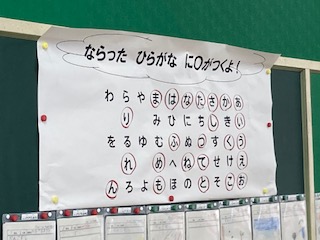 ならった ひらがな に○がつくよ！
あいうえお
かきくけこ
さしすせそ
たちつてと
なにぬねの
はひふへほ
まみむめも
やゆよ
らりるれろ
わをん